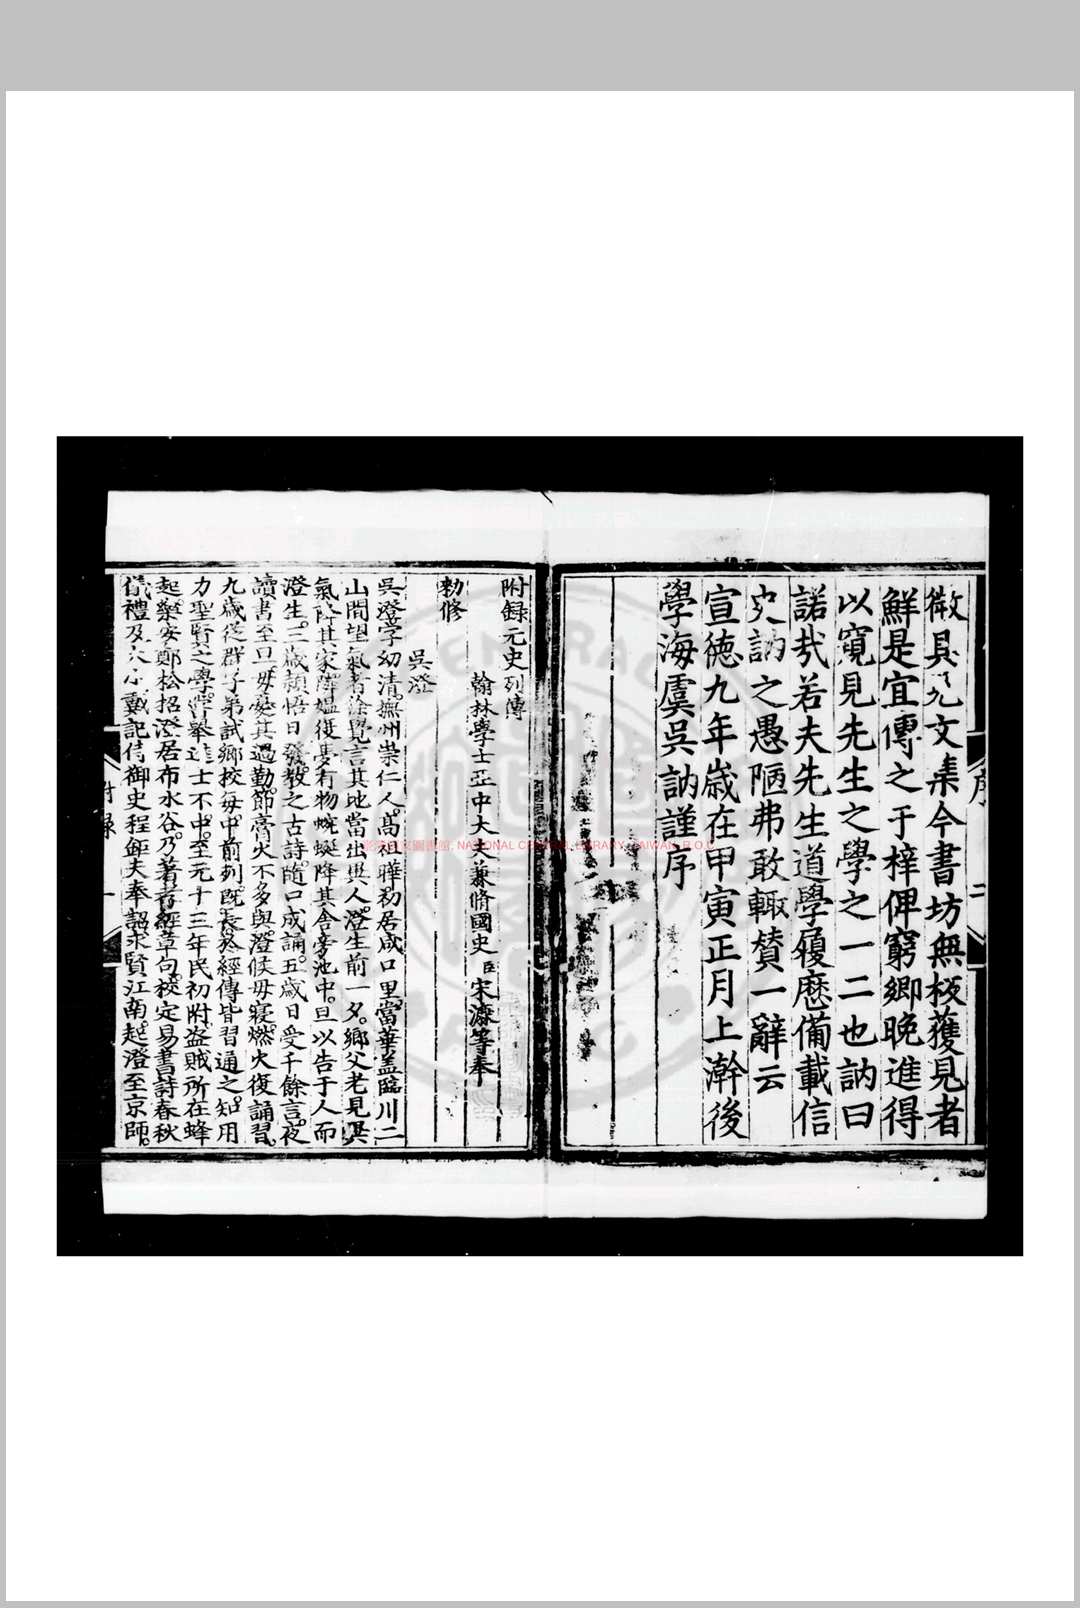 微具九文集今書坊無板獲見者
鮮是宜傳之于梓俾窮鄉晚進得
以窺見先生之學之一二也訥曰
諾哉若夫先生道學履歷備載信
史訥之愚陋弗敢輒賛一辭云
宣德九年歲在甲寅正月上澣後
學海虞吳訥謹序
序
二
附録元史列傳
翰林學士亞中大夫兼脩國史臣宋濂等奉
勅修
吳澄
吳澄字幼清撫州崇仁人高祖曄初居咸口里當華盖臨川二
山間望氣者徐覺言其地當出異人澄生前一夕鄉父老見異
氣降其家隣媪復夢有物蜿蜒降其舍旁池中旦以告于人而
澄生三歲頴悟日發教之古詩隨口成誦五歲日受千餘言夜
讀書至旦母憂其過勤節膏火不多與澄候母寢燃火復誦習
九歲從群子弟試鄉校每中前列旣長於經傳皆習通之知用
力聖賢之學嘗舉進士不中至元十三年民初附盗賊所在蜂
起樂安鄭松招澄居布水谷乃著孝經章句校定易書詩春秋
儀禮及大小戴記侍御史程鉅夫奉詔求賢江南起澄至京師
附録
一
NATIONAL CENTRAL LIBRARY, TAIWAN, R.O.C.